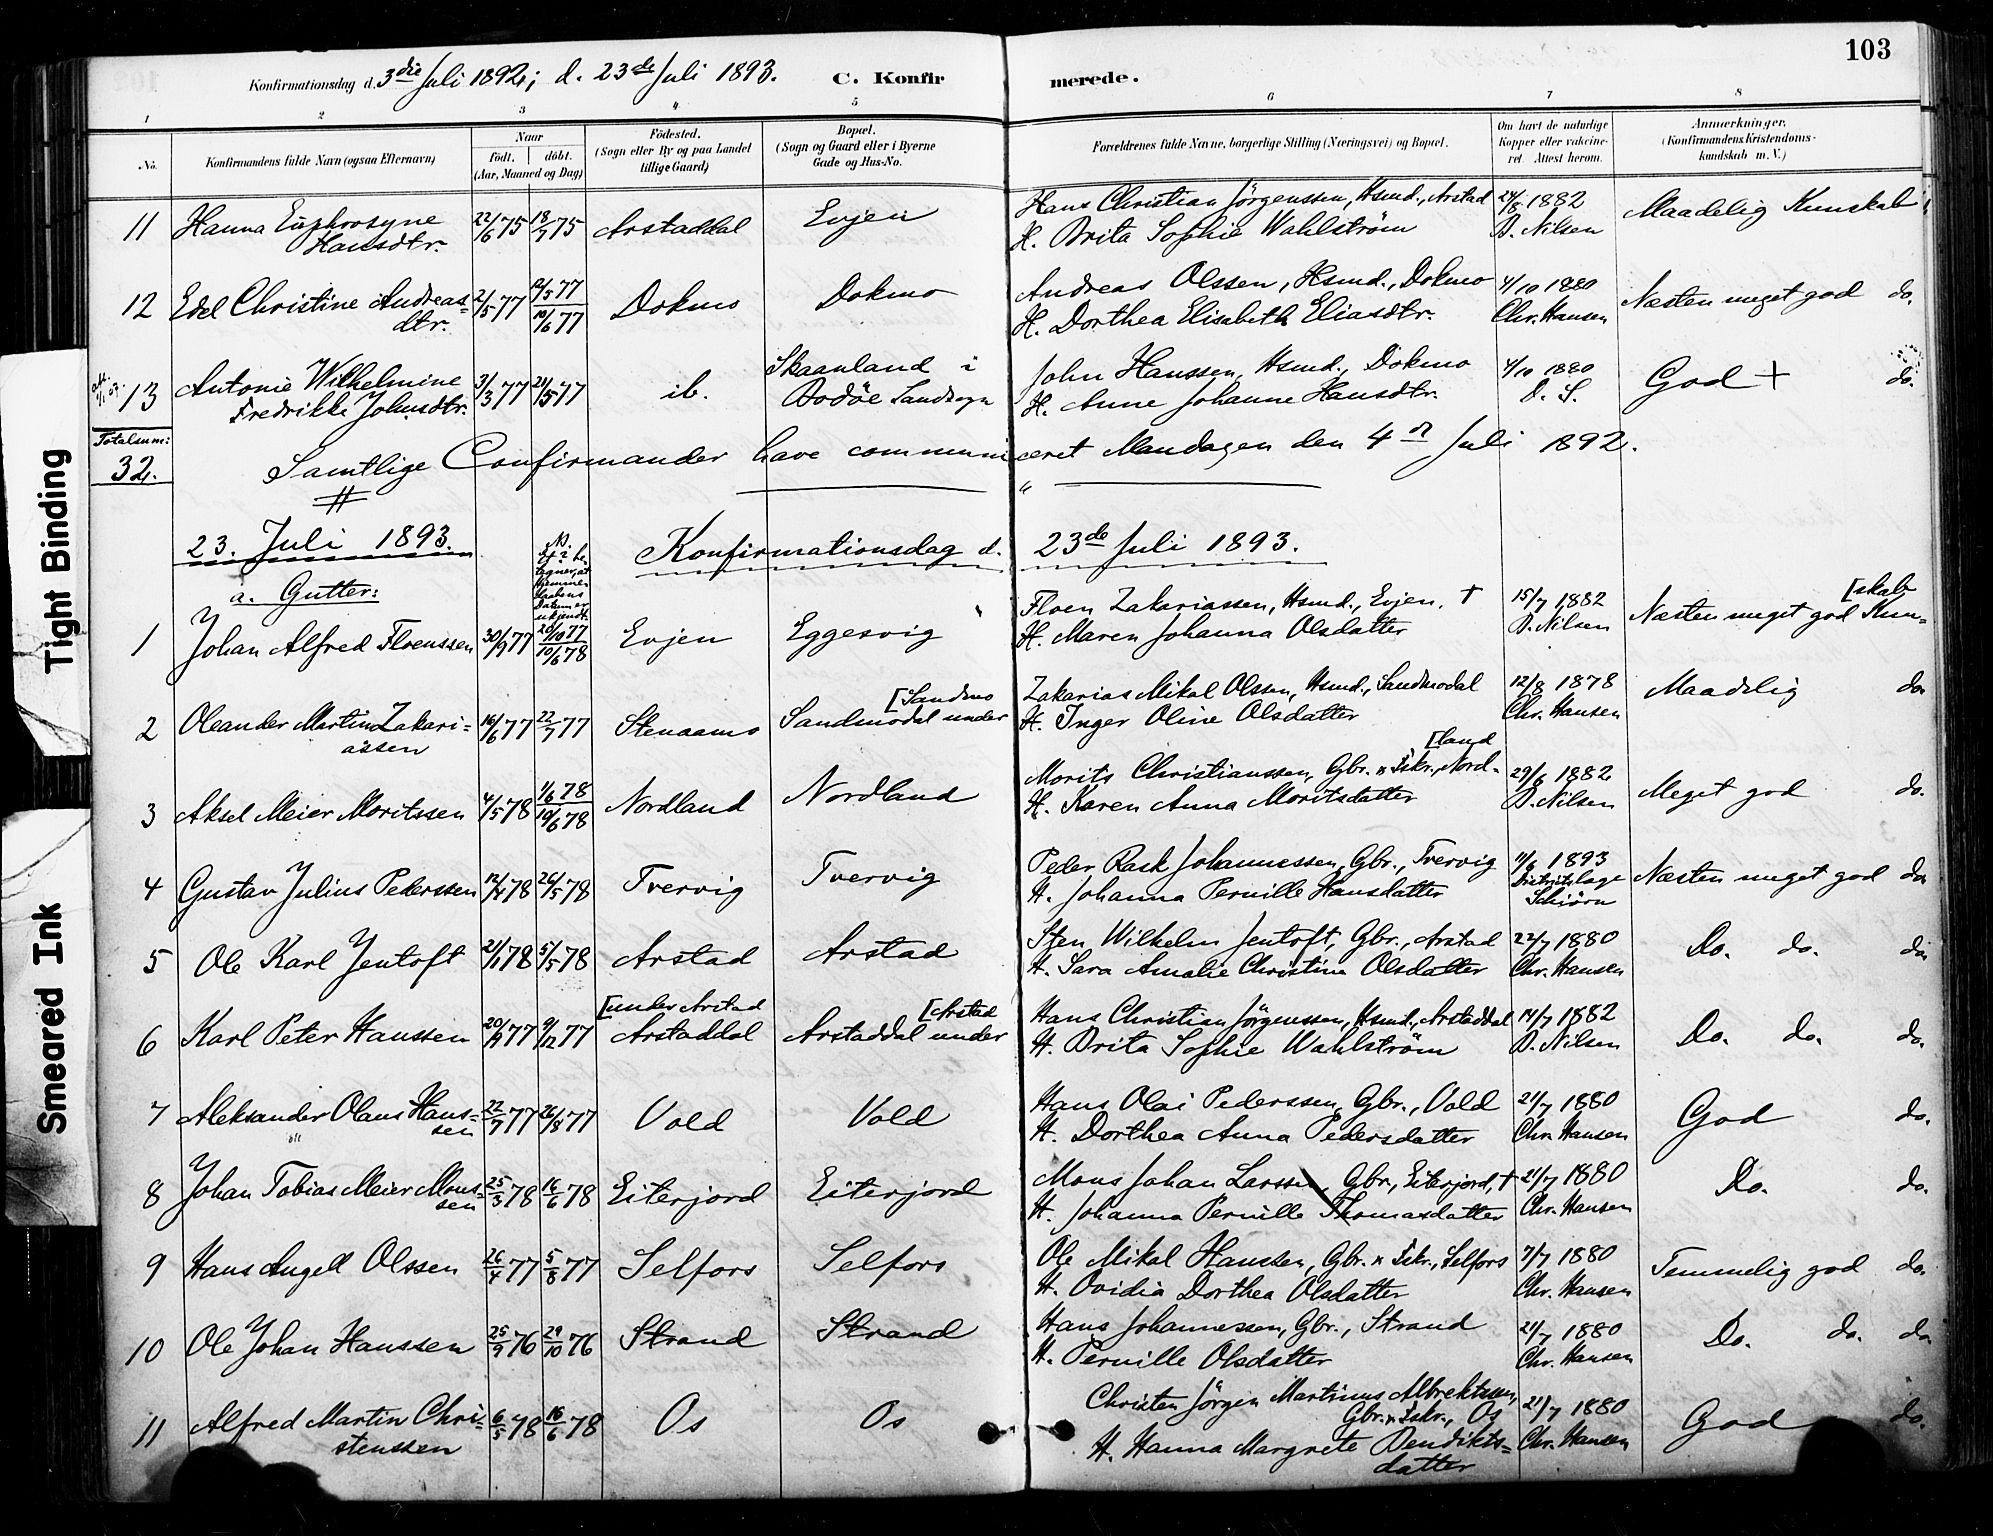 103
Konfirmationsdag d. 3die Juli 1892; d. 23de Juli 1893. C. Konfirmerede.
1 2 3 4 5 6 7 8
No.
Konfirmandens fulde Navn (ogsaa Efternavn)
Naar
født. døbt.
(Aar, Maaned og Dag)
Fødested.
(Sogn eller By og paa Landet
tillige Gaard)
Bopæl.
(Sogn og Gaard eller i Byerne
Gade og Hus-No.
Forældrenes fulde Navne, borgerlige Stilling (Næringsvei) og Bopæl.
Om havt de naturlige
Kopper eller vakcine-
ret. Attest herom.
Anmærkninger.
(Konfirmandens Kristendoms-
kundskab m. V.)
11 Hanna Euphrosyne 22/6 75 18/7 75 Arstaddal Evjen Hans Christian Jörgenssen, Hsmd., Arstad 24/8 1882 Maadelig Kunskab
Hansdtr. H. Brita Sophie Wahlström D. Nilsen
12 Edel Christine Andreas= 2/5 77 12/5 77 Dokmo Dokmo Andreas Olssen, Hsmd., Dokmo 4/10 1880 Næsten meget god do.
dtr. 10/6 77 H. Dorthea Elisabeth Eliasdtr. Chr. Hansen
13 Antonie Wilhelmine 3/3 77 21/5 77 ib. Skaanland i John Hanssen, Hsmd., Dokmo 4/10 1880 God + do.
Fredrikke Johnsdtr. Bodöe Landsogn H. Anne Johanne Hansdtr. D. S.
Totalsum:
32.
Samtlige Confirmander have communiceret Mandagen den 4de Juli 1892.
23. Juli 1893. Konfirmationsdag d. 23de Juli 1893.
a. Gutter:
1 Johan Alfred Floenssen 30/9 77 20/10 77 Evjen Eggesvig Floen Zakariassen, Hsmd., Evjen. † 15/7 1882 Næsten meget god Kun= [skab
10/6 78 H. Maren Johanna Olsdatter D. Nilsen
2 Oleander Martin Zakari= 16/6 77 22/7 77 Stenaamo Sandmodal under [Sandmo Zakarias Mikal Olssen, Hsmd., Sandmodal 12/8 1878 Maadelig do.
assen H. Inger Oline Olsdatter Chr. Hansen
3 Aksel Meier Moritssen 4/5 78 1/6 78 Nordland Nordland Morits Christianssen, Gbr. & Fskr., Nord- [land 29/6 1882 Meget god do.
10/6 78 H. Karen Anna Moritsdatter D. Nilsen
4 Gustav Julius Pederssen 12/4 78 26/5 78 Tvervig Tvervig Peder Rask Johannessen, Gbr., Tvervig 11/6 1893 Næsten meget god do.
H. Johanna Pernille Hansdatter Distriktslæge
Schiörn
5 Ole Karl Jentoft 21/1 78 5/5 78 Arstad Arstad Sten Wilhelm Jentoft, Gbr., Arstad 22/7 1880 Do. do. do.
H. Sara Amalie Christine Olsdatter Chr. Hansen
6 Karl Peter Hanssen 20/9 77 9/12 77 Arstaddal [under Arstad Arstaddal under [Arstad Hans Christian Jörgenssen, Hsmd., Arstaddal 14/7 1882 Do. do. do.
H. Brita Sophie Wahlström D. Nilsen
7 Aleksander Olaus Hans= 22/7 77 26/8 77 Vold Vold Hans Olai Pederssen, Gbr., Vold 21/7 1880 God do.
sen H. Dorthea Anna Pedersdatter Chr. Hansen
8 Johan Tobias Meier Mons= 25/3 78 16/6 78 Eiterjord Eiterjord Mons Johan Larssen, Gbr., Eiterjord, † 21/7 1880 Do. do.
sen H. Johanna Pernille Thomasdatter Chr. Hansen
9 Hans Angell Olssen 26/4 77 5/8 77 Selfors Selfors Ole Mikal Hanssen, Gbr. & Fskr., Selfors 7/7 1880 Temmelig god do.
H. Ovidia Dorthea Olsdatter Chr. Hansen
10 Ole Johan Hanssen 25/9 76 29/10 76 Strand Strand Hans Johannessen, Gbr., Strand 21/7 1880 Do. do. do.
H. Pernille Olsdatter Chr. Hansen
11 Alfred Martin Chri= 6/5 78 16/6 78 Os Os Christen Jörgen Martinus Albrektssen, 21/7 1880 God do.
stenssen Gbr. & Fskr., Os Chr. Hansen
H. Hanna Margrete Bendikts=
datter
Tight Binding
Smeared Ink